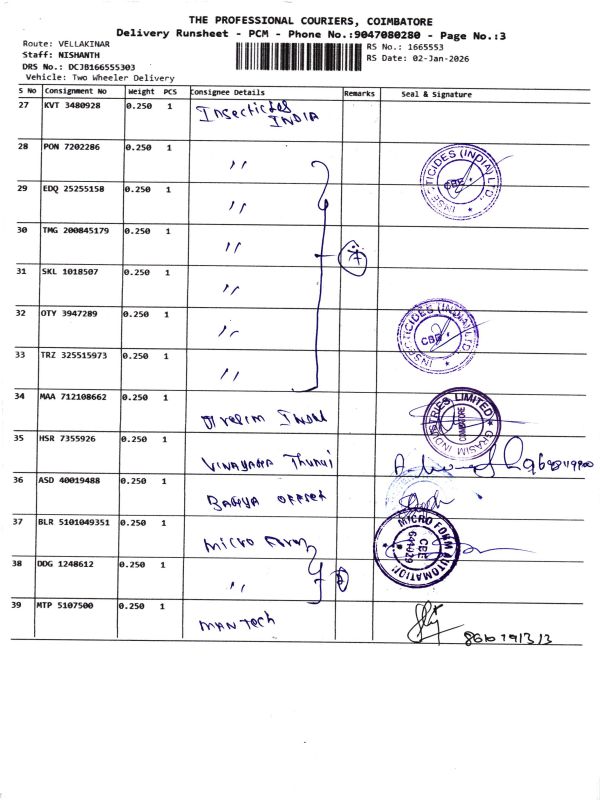 THE PROFESSIONAL COURIERS, COIMBATORE
Delivery Runsheet - PCM - Phone No.:9047080280 - Page No.:3
Route: VELLAKINAR
Staff: NISHANTH
DRS No.: DCJB166555303
Vehicle: Two Wheeler Delivery
RS No.: 1665553
RS Date: 02-Jan-2026
S No Consignment No Weight PCS Consignee Details Remarks Seal & Signature
27 KVT 3480928 0.250 1 Insecticides INDIA
28 PON 7202286 0.250 1 〃
INSECTICIDES (INDIA) LTD. CBE
29 EDQ 25255158 0.250 1 〃
30 TMG 200845179 0.250 1 〃 7
31 SKL 1018507 0.250 1 〃
32 OTY 3947289 0.250 1 〃
INSECTICIDES (INDIA) LTD. CBE
33 TRZ 325515973 0.250 1 〃
34 MAA 712108662 0.250 1
GRASIM INDUSTRIES LIMITED COIMBATORE
35 HSR 7355926 0.250 1 VINAYAGA Thunai
36 ASD 40019488 0.250 1 BAGYA OFFSET
37 BLR 5101049351 0.250 1 Micro Form
MICRO FORM AUTOMATION CBE 641029
38 DDG 1248612 0.250 1 〃 2
39 MTP 5107500 0.250 1 MAN Tech